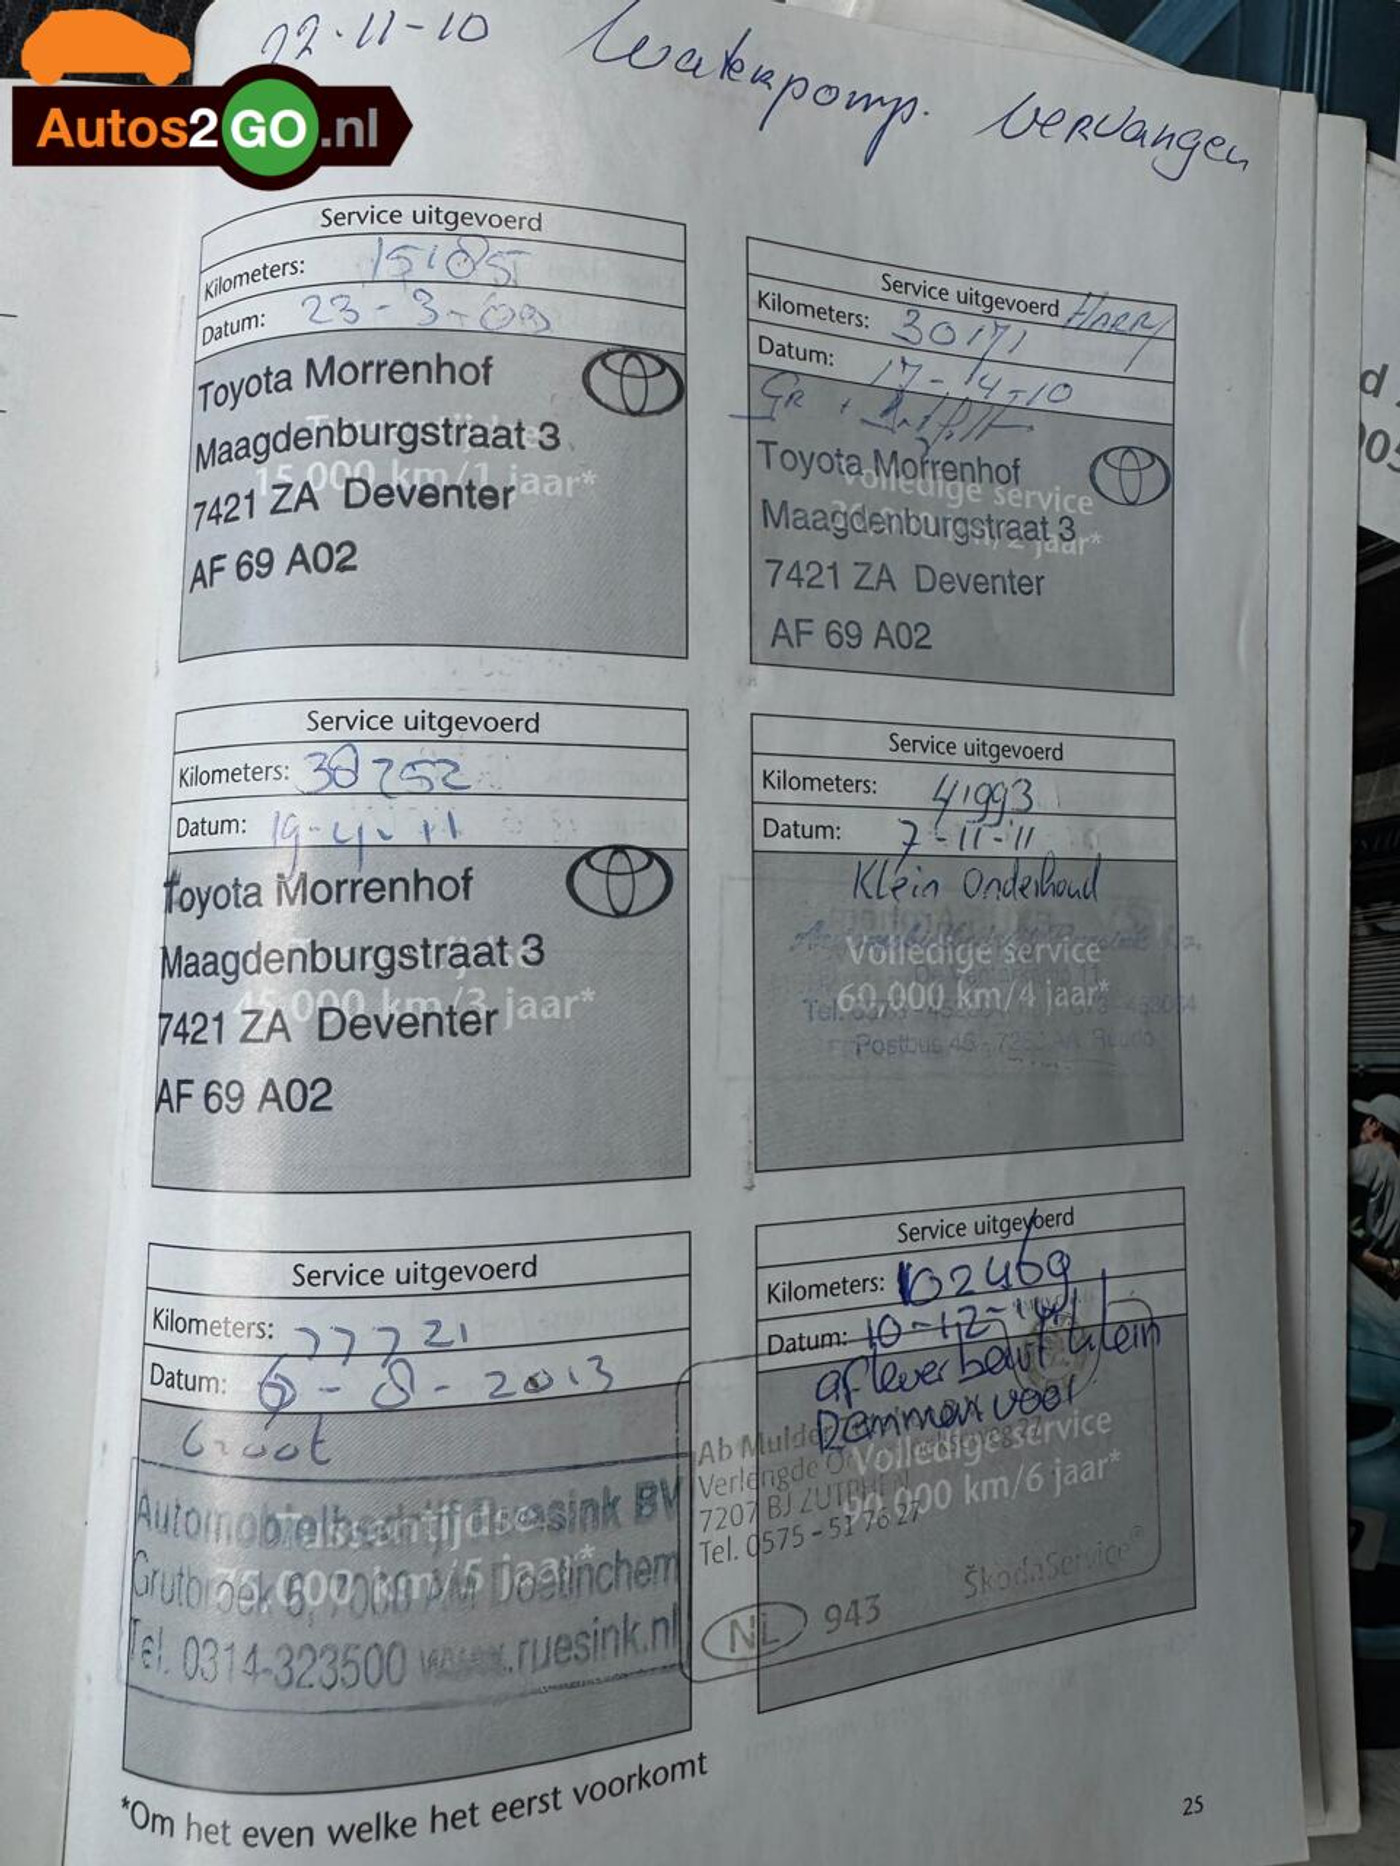 Autos2GO.nl
22-11-10 Waterpomp. vervangen
Service uitgevoerd
Kilometers: 15185
Datum: 23-3-09
Toyota Morrenhof
Maagdenburgstraat 3
15.000 km/1 jaar*
7421 ZA Deventer
AF 69 A02
Service uitgevoerd HARRY
Kilometers: 30171
Datum: 17-14-10
GR +
Toyota Morrenhof
Volledige service
Maagdenburgstraat 3
/2 jaar*
7421 ZA Deventer
AF 69 A02
Service uitgevoerd
Kilometers: 38252
Datum: 19-4-11
Toyota Morrenhof
Maagdenburgstraat 3
45.000 km/3 jaar*
7421 ZA Deventer
AF 69 A02
Service uitgevoerd
Kilometers: 41993
Datum: 7-11-'11
Klein Onderhoud
Volledige service
60.000 km/4 jaar*
Tel.
Postbus 46 - 72
Service uitgevoerd
Kilometers: 77721
Datum: 6-8-2013
Groot
Automobielbedrijf Ruesink BV
Grutbroek 6, 7008 AM Doetinchem
75.000 km/5 jaar*
Tel. 0314-323500 www.ruesink.nl
Service uitgevoerd
Kilometers: 102469
Datum: 10-12-14
afleverbeurt klein
Remmen voor
Ab Mulder
Volledige service
Verlengde
90.000 km/6 jaar*
7207 BJ ZUTPHEN
Tel. 0575-51 76 27
ŠkodaService®
NL 943
*Om het even welke het eerst voorkomt
25
d
005